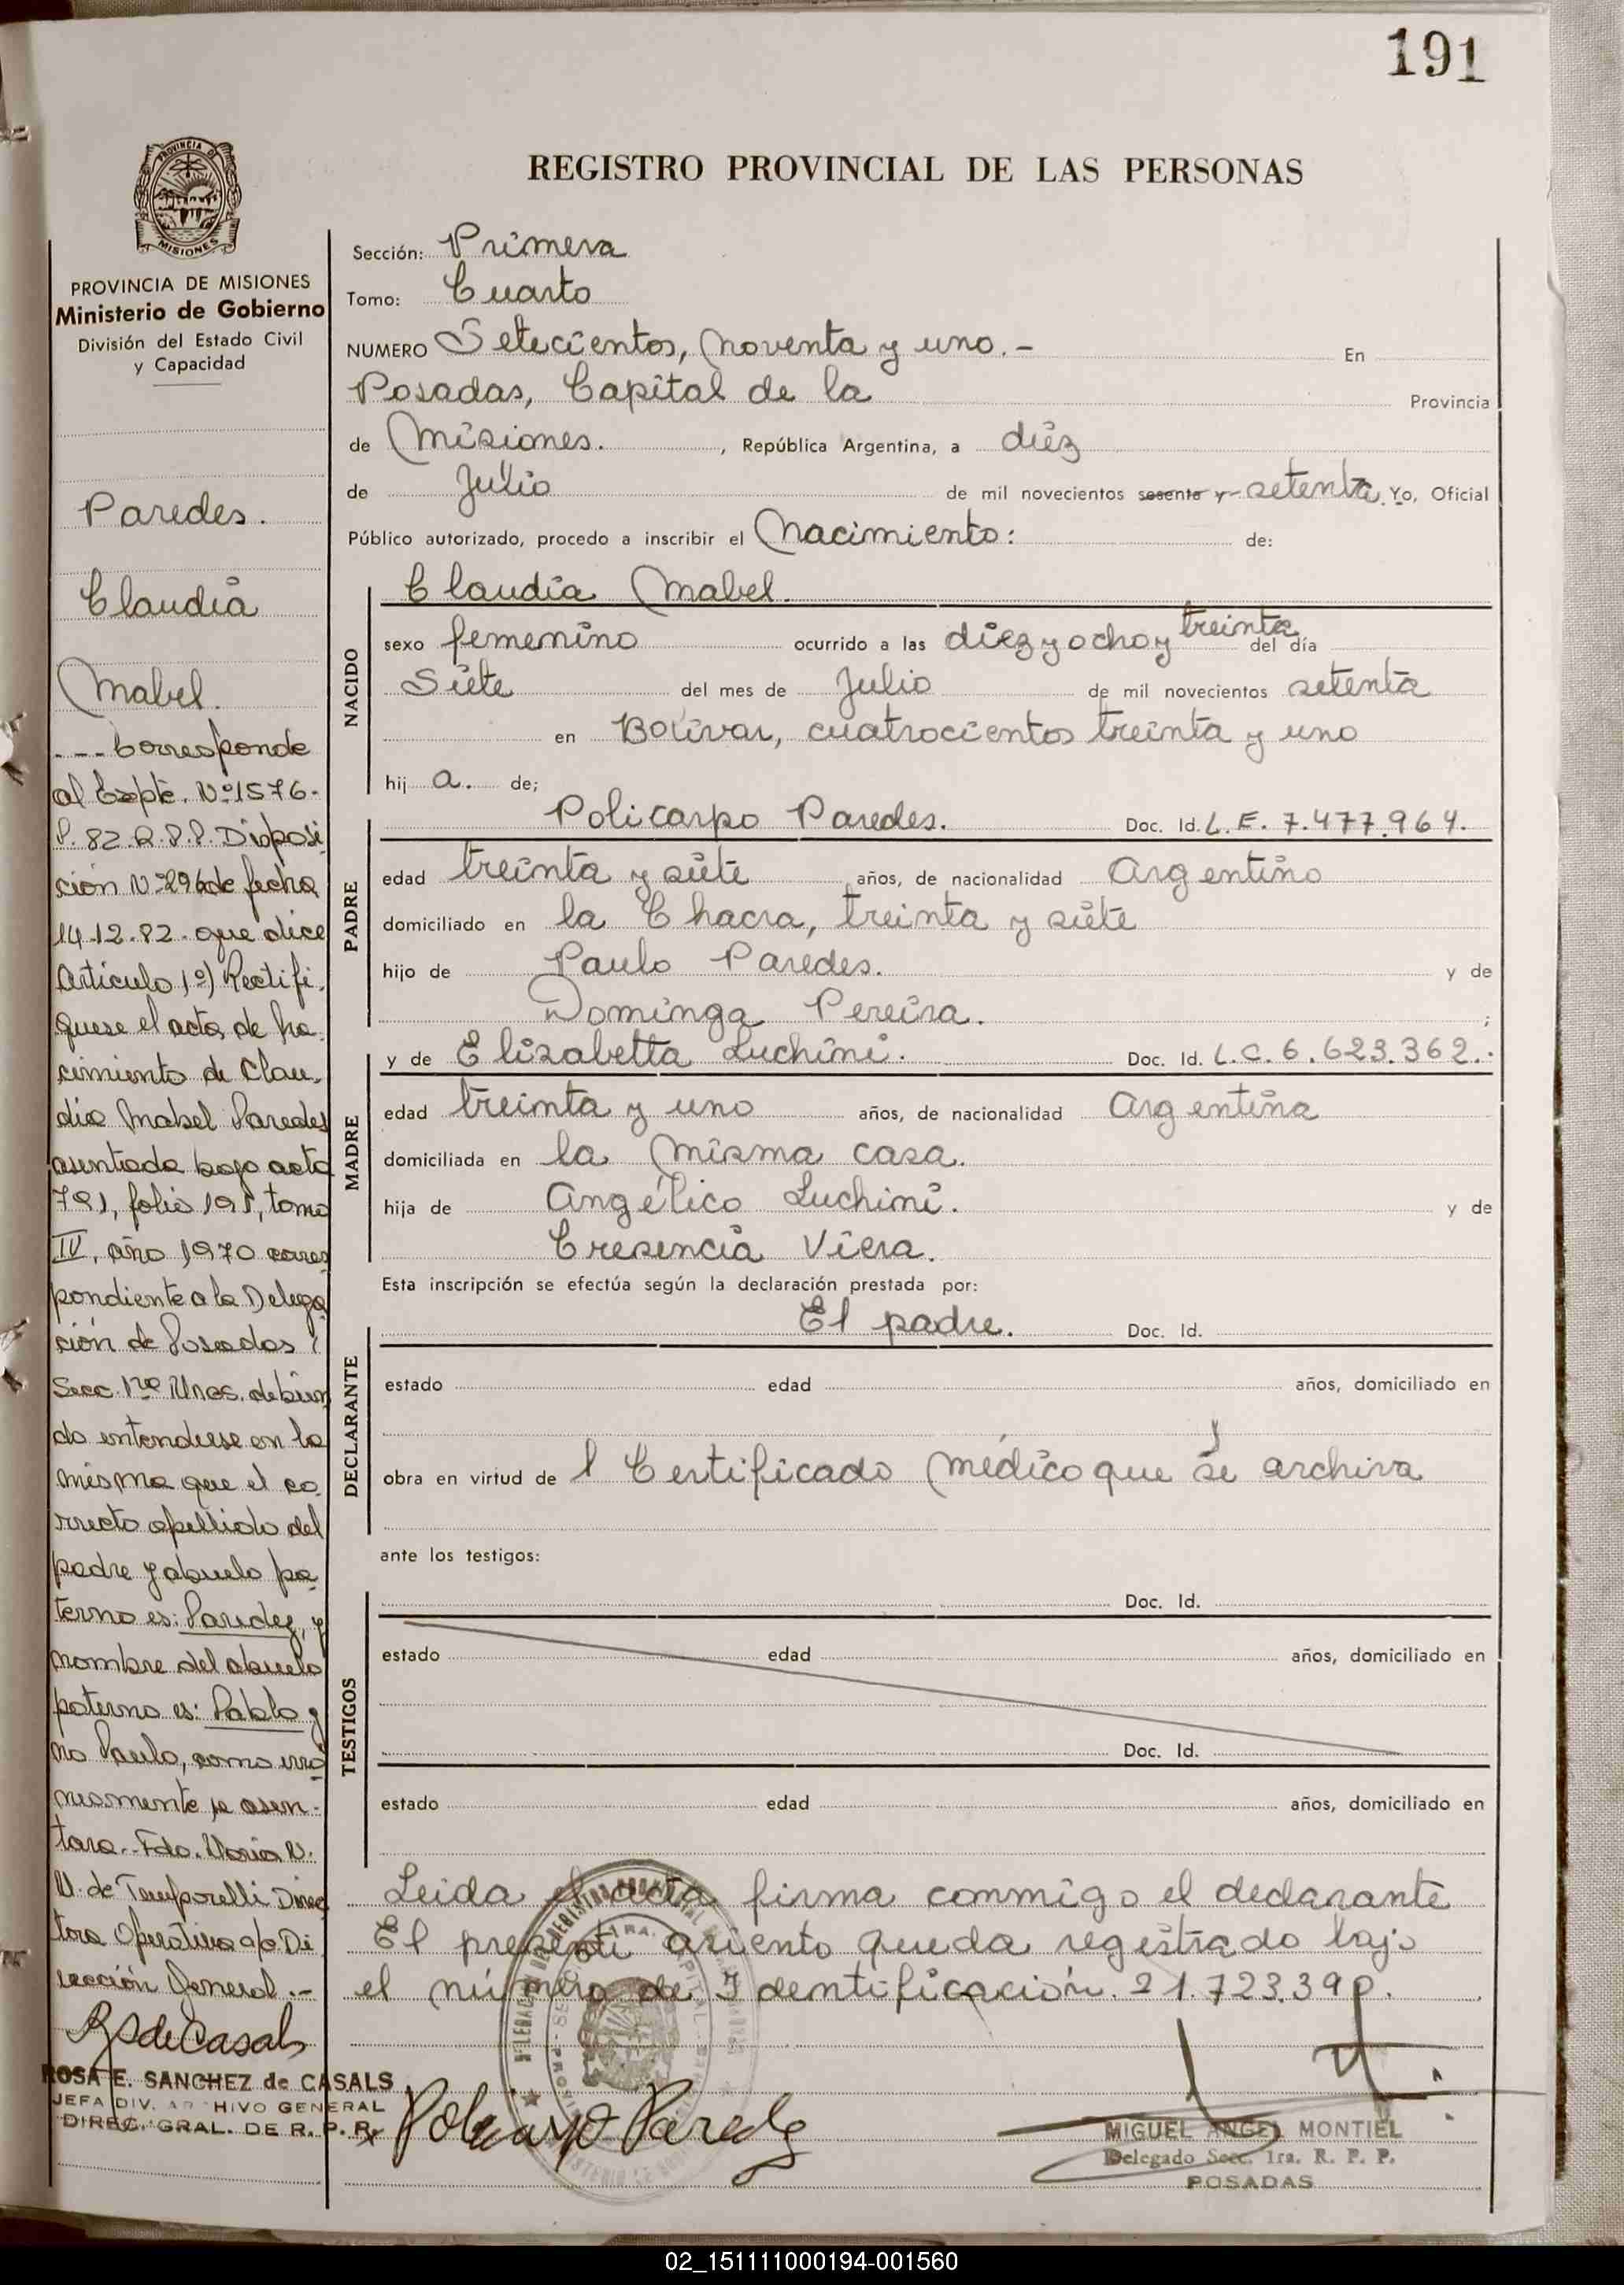 191
REGISTRO PROVINCIAL DE LAS PERSONAS
PROVINCIA DE
MISIONES
PROVINCIA DE MISIONES
Ministerio de Gobierno
División del Estado Civil
y Capacidad
Paredes.
Claudia
Mabel.
--- Corresponde
al Expte. Nº 1576-
P. 82 R.P.P. Disposi
ción Nº 296 de fecha
14-12-82- que dice
Artículo 1º) Rectifí-
quese el acta de na
cimiento de Clau-
dia Mabel Paredes
asentada bajo acta
791, folio 191, tomo
IV, año 1970 corres
pondiente a la Delega
ción de Posadas
Secc. 1ra Mnes. debien
do entenderse en la
misma que el co
rrecto apellido del
padre y abuelo pa
terno es: Paredez, y
nombre del abuelo
paterno es: Pablo y
no Paulo, como erró
neamente se asen-
tara.- Fdo. María N.
N. de Temporelli Direc
tora Operativa a/c Di
rección General.-
RSdeCasals
ROSA E. SANCHEZ de CASALS
JEFA DIV. ARCHIVO GENERAL
DIREC. GRAL. DE R. P. P.
Sección: Primera
Tomo: Cuarto
NUMERO Setecientos, noventa y uno.- En
Posadas, Capital de la Provincia
de Misiones. , República Argentina, a diéz
de Julio de mil novecientos sesenta y setenta. Yo, Oficial
Público autorizado, procedo a inscribir el Nacimiento: de:
NACIDO
Claudia Mabel.
sexo femenino ocurrido a las diez y ocho y treinta del día
Siéte del mes de Julio de mil novecientos setenta
en Bolívar, cuatrocientos treinta y uno
hij a. de;
PADRE
Policarpo Paredes. Doc. Id. L. E. 7.477.964.
edad treinta y siéte años, de nacionalidad Argentino
domiciliado en la Chacra, treinta y siéte
hijo de Paulo Paredes. y de
Dominga Pereira. ;
MADRE
y de Elisabetta Luchini. Doc. Id. L.C. 6.623.362.-
edad treinta y uno años, de nacionalidad Argentina
domiciliada en la misma casa.
hija de Angélico Luchini. y de
Cresencia Viera.
Esta inscripción se efectúa según la declaración prestada por:
DECLARANTE
El padre. Doc. Id.
estado edad años, domiciliado en
obra en virtud de l Certificado médico que se archiva
ante los testigos:
TESTIGOS
Doc. Id.
estado edad años, domiciliado en
Doc. Id.
estado edad años, domiciliado en
Leida el acta firma conmigo el declarante
El presente asiento queda registrado bajo
el número de Identificación. 21.723.390.
Policarpo Paredez
MIGUEL ANGEL MONTIEL
Delegado Secc. 1ra. R. P. P.
POSADAS
02_151111000194-001560